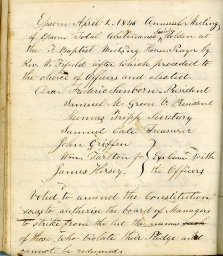 Epsom April 2, 1845 Annual Meeting
of Epsom Total Abstinence Society holden at
the F. Baptist Meeting House Prayer by
Rev. W. Fifield after which proceeded to
the choice of Officers and elected
Dea. Frederic Sanborn President
Samuel M. Green V. President
Thomas Tripp Secretary
Samuel Cate Treasurer
John Griffin
Wm Tarlton
James Hersey
with
the Officers
Voted to amend the Constitution
so as to authorize the board of Managers
to strike from the list the names
of those who violate their Pledge and
cannot be reclaimed